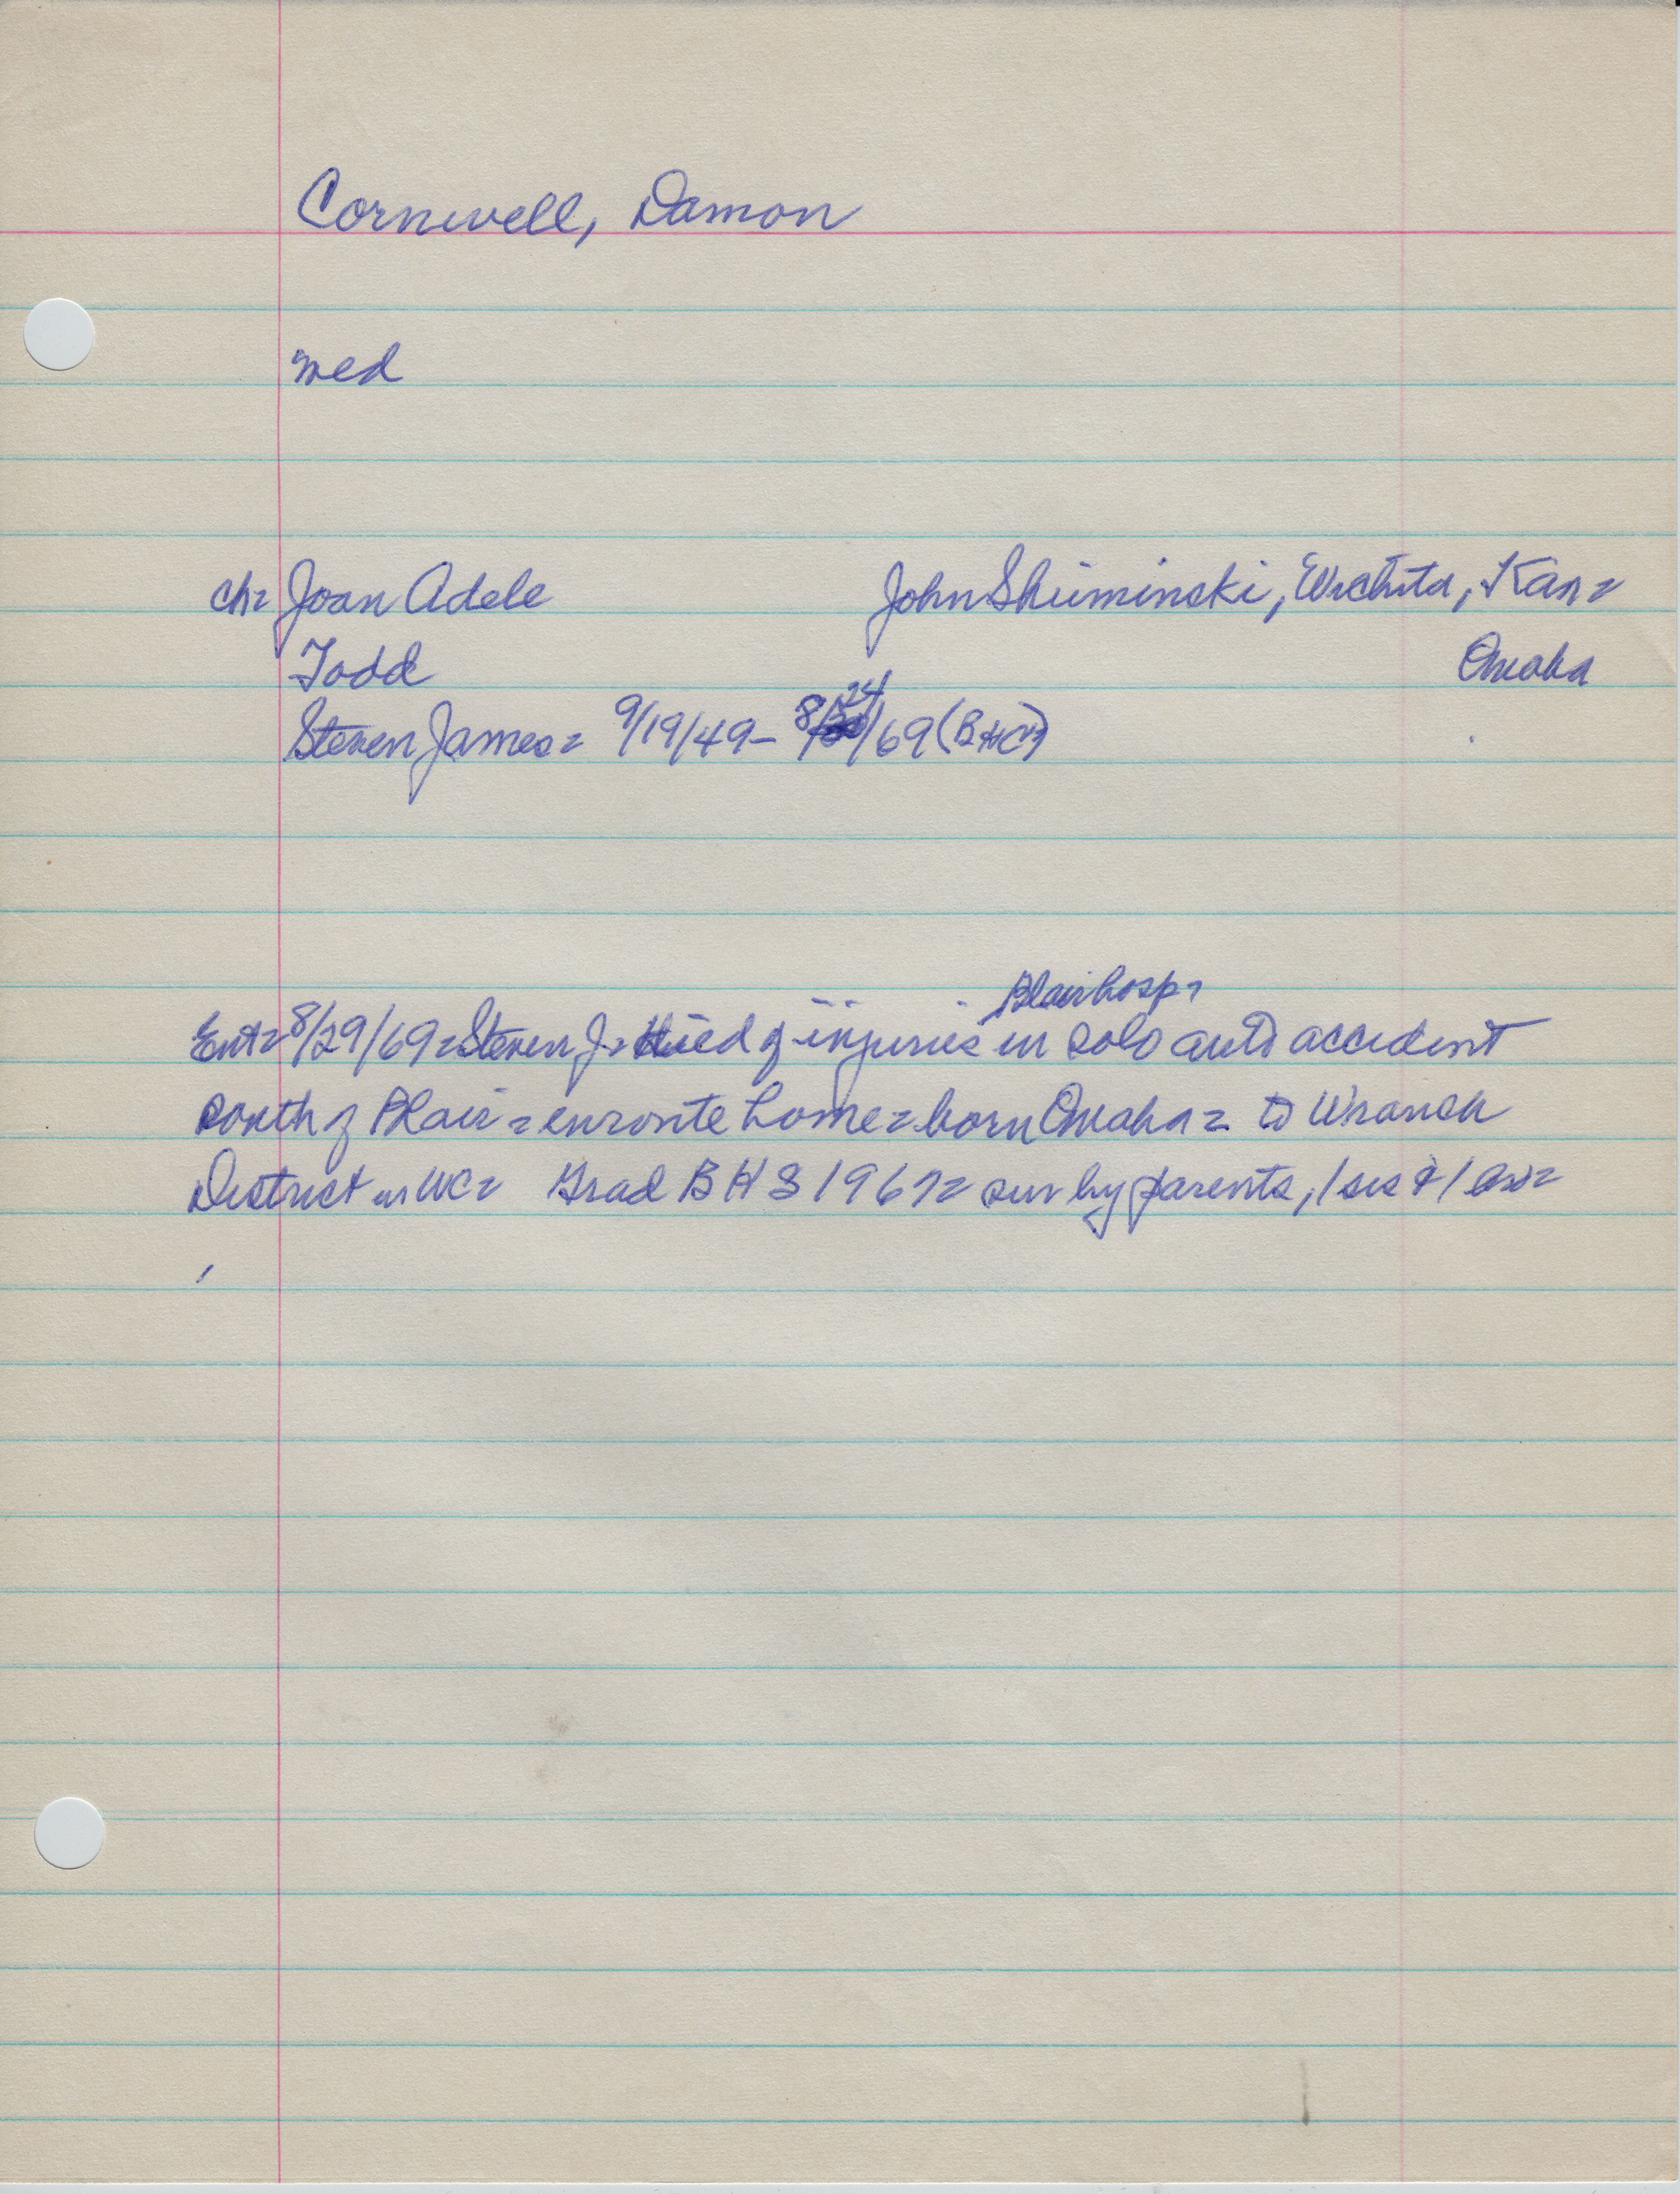 Cornwell, Damon
med
ch= Joan Adele John Shuminski, Wichita, Kan=
Todd Omaha
Steven James= 9/19/49- 8/24/69 (B H C)
Blair hosp=
Ent= 8/29/69= Steven J= died of injuries in solo auto accident
south of Blair = enroute home= born Omaha= to Wranch
District in WC= Grad B H S 1967= sur by parents, 1 sis & 1 bro=